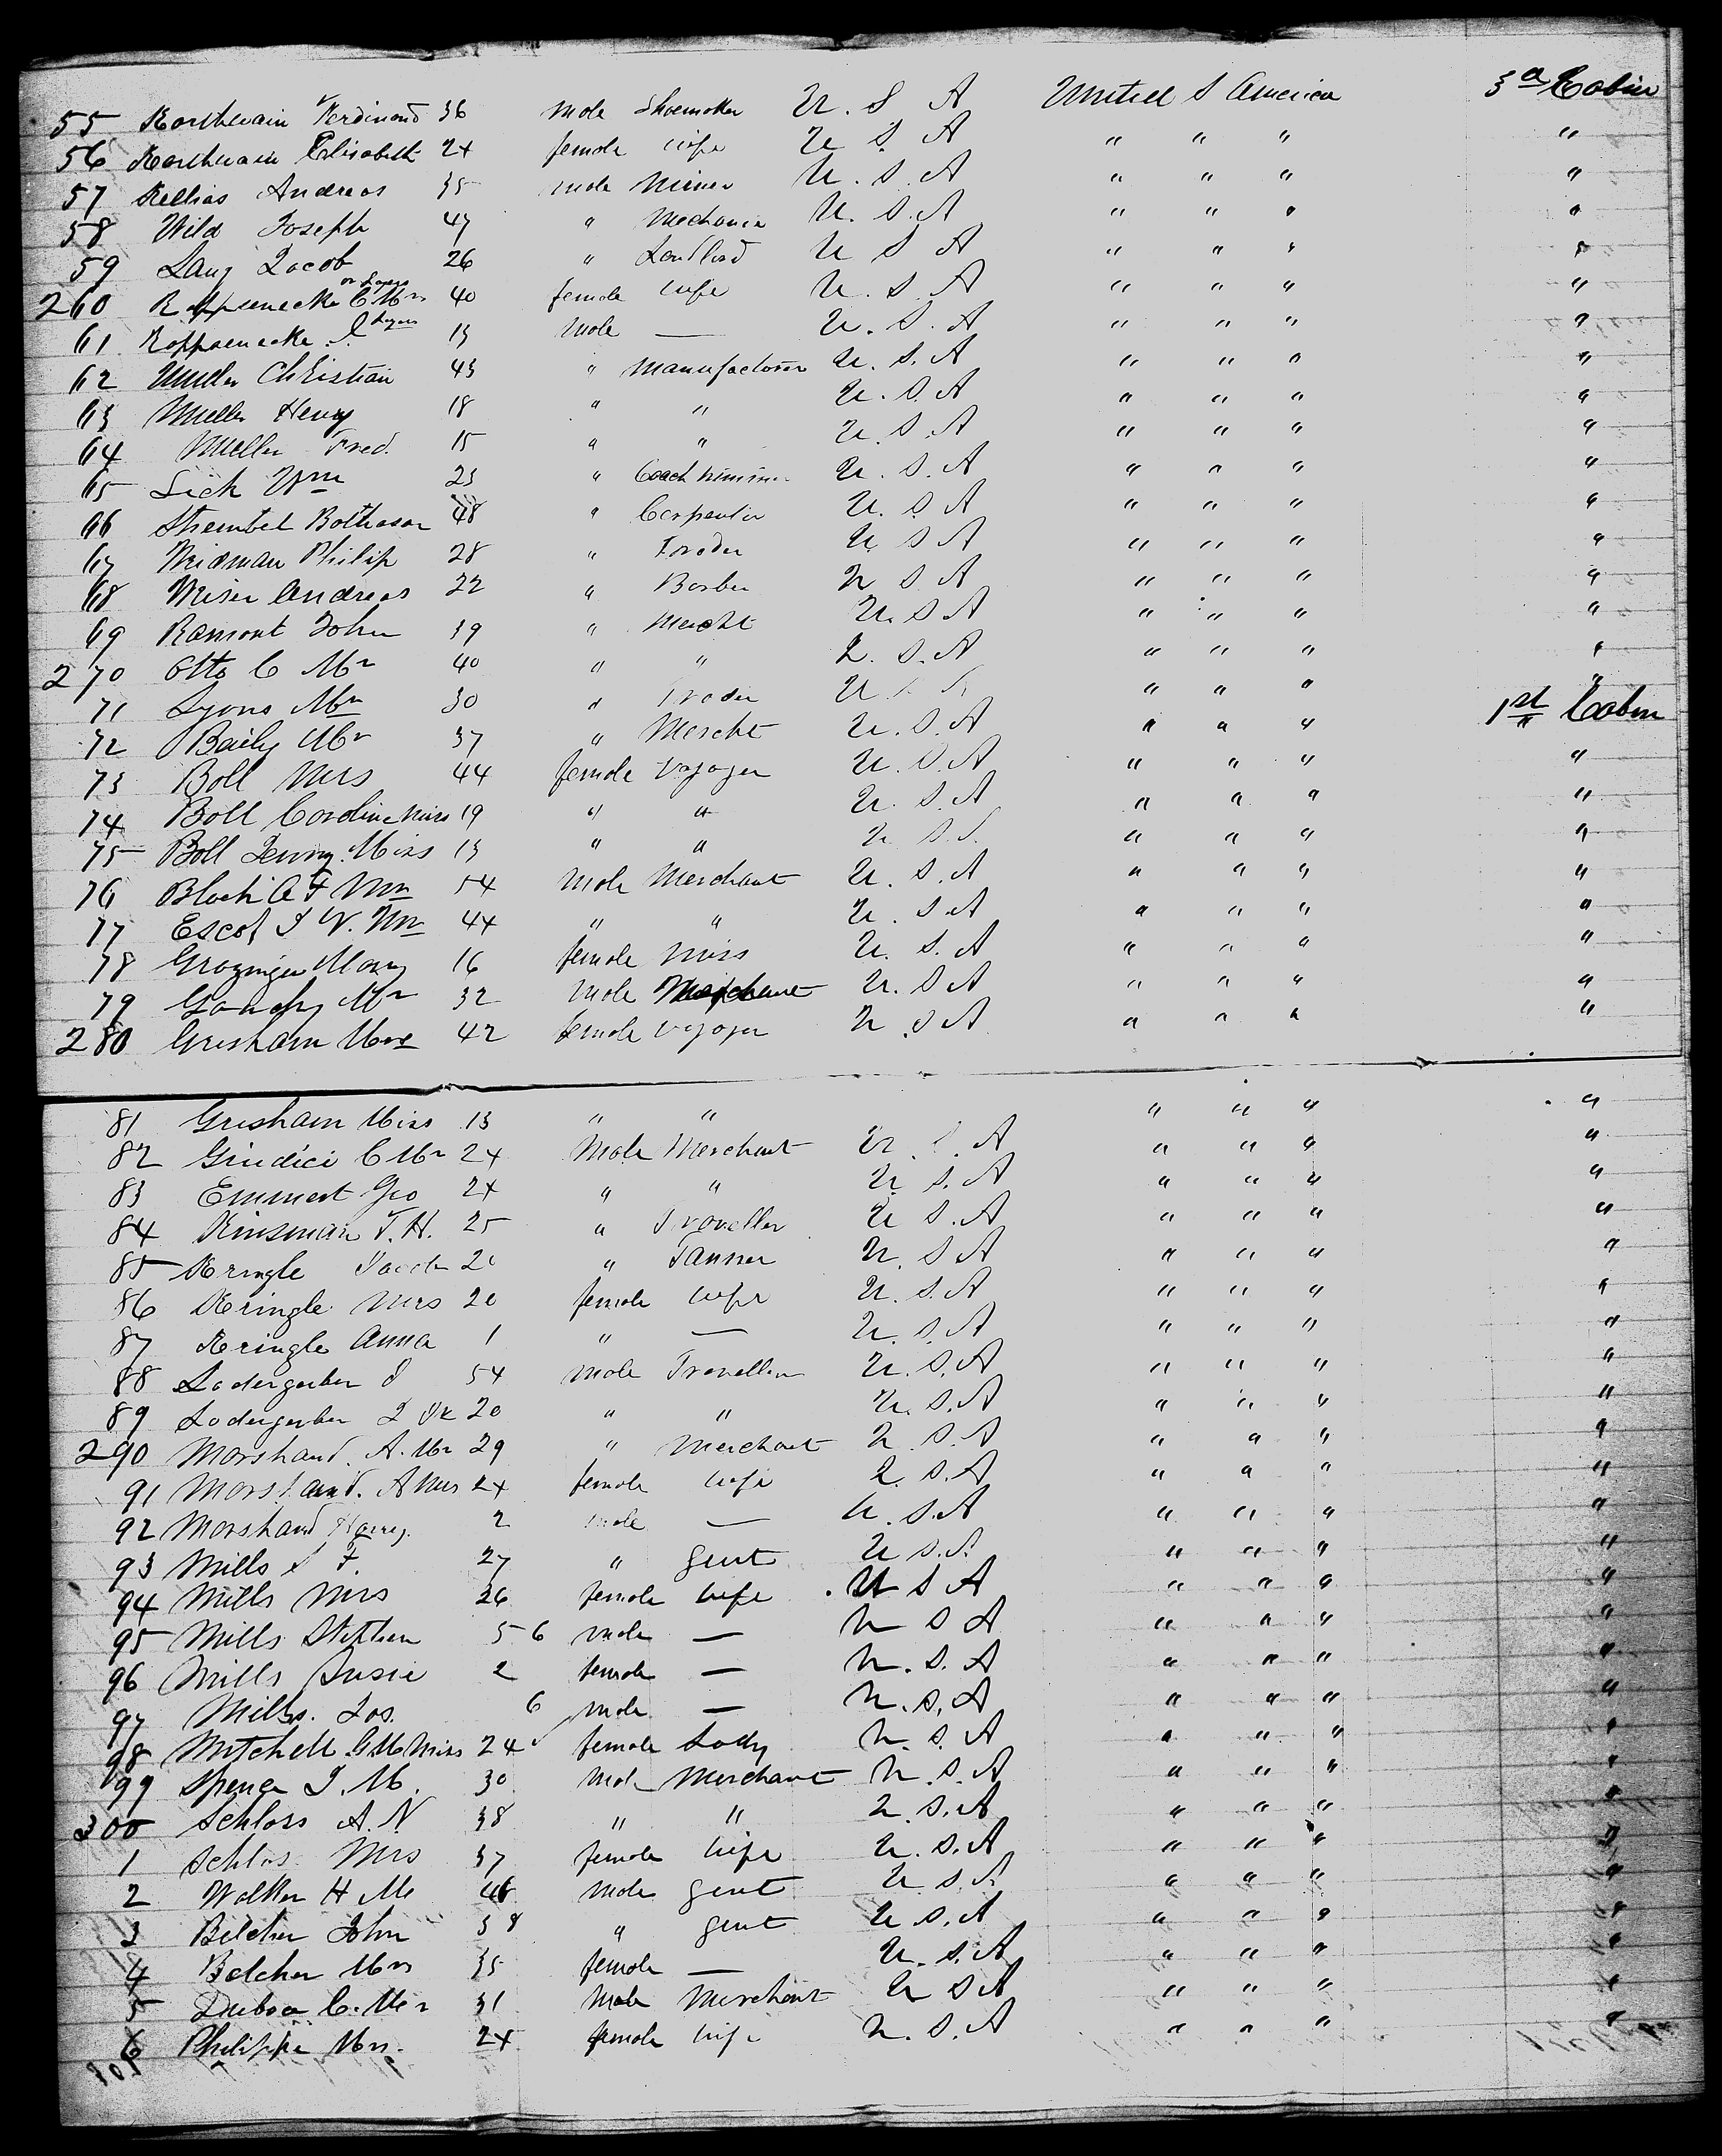 55 Korthwain Ferdinand 36 male Shoemaker U. S A United S America 3d Cabin
56 Korthwain Elisabeth 24 female wife U S. A " " " "
57 Andreas 35 male Miner U. S. A " " " "
58 Wild Joseph 47 " Mechanic U. S. A " " " "
59 Lang Jacob 26 " Landlord U S A " " " "
260 C Mrs 40 female wife U. S. A " " " "
61 13 male — U. S. A " " " "
62 Muller Christian 43 " Manufacturer U. S. A " " " "
63 Muller Henry 18 " " U. S. A " " " "
64 Muller Fred. 15 " " U. S. A " " " "
65 Sick Wm 23 " Coach trimmer U. S. A " " " "
66 Strembel Balthasar 48 " Carpenter U. S A " " " "
67 Widman Philip 28 " Trader U S A " " " "
68 Andreas 22 " Barber U S A " " " "
69 Ramont John 39 " Mercht U. S A " " " "
270 Otto C Mr 40 " " U. S. A " " " "
71 Lyons Mr 30 " Trader U " " " "
72 Baily Mr 37 " Mercht U. S. A " " " 1st Cabin
73 Boll Mrs 44 female voyager U. S. A " " " "
74 Boll Caroline Miss 19 " " U. S. A " " " "
75 Boll Jenny Miss 13 " " U. S. " " " "
76 Bloch A F Mr 54 male Merchant U. S. A " " " "
77 Escot J V. Mr 44 " " U. S. A " " " "
78 Grozinger Mary 16 female Miss U. S. A " " " "
79 Mr 32 male Merchant U. S A " " " "
280 Grisham Mrs 42 female voyager U S A " " " "
81 Grisham Miss 13 " " " " " "
82 Giudici C Mr 24 male Merchant U. S. A " " " "
83 Emmert Geo 24 " " U. S. A " " " "
84 Kinsman F. H. 25 " Traveller U S. A " " " "
85 Kringle Jacob " Tanner U. S A " " " "
86 Kringle Mrs 20 female wife U. S. A " " " "
87 Kringle Anna 1 " — U. S. A " " " "
88 Lodergerber J 54 male Traveller U. S. A " " " "
89 Lodergerber J Jr 20 " " U. S. A " " " "
290 Morshand. A. Mr 29 " Merchant U. S. A " " " "
91 Morshand. A Mrs 24 female wife U. S. A " " " "
92 Morshand Harry. 2 male — U. S. A " " " "
93 Mills S F. 27 " gent U S. A " " " "
94 Mills Mrs 26 female wife U S A " " " "
95 Mills Stephen 5 6 male — U S A " " " "
96 Mills Susie 2 female — U. S. A " " " "
97 Mills. Jos. 6 male — U. S. A " " " "
98 Mitchell G M Miss 24 female Lady U. S. A " " " "
99 Spencer J. M. 30 male Merchant U. S. A " " " "
300 Schloss A. N 38 " " U. S. A " " " "
1 Schlos Mrs 37 female wife U. S. A " " " "
2 Walker H M 48 male gent U. S. A " " " "
3 Belcher John 38 " gent U S. A " " " "
4 Belcher Mrs 35 female — U. S. A " " " "
5 C. Mr 31 male Merchant U S A " " " "
6 Philippi Mrs. 24 female wife U. S. A " " " "